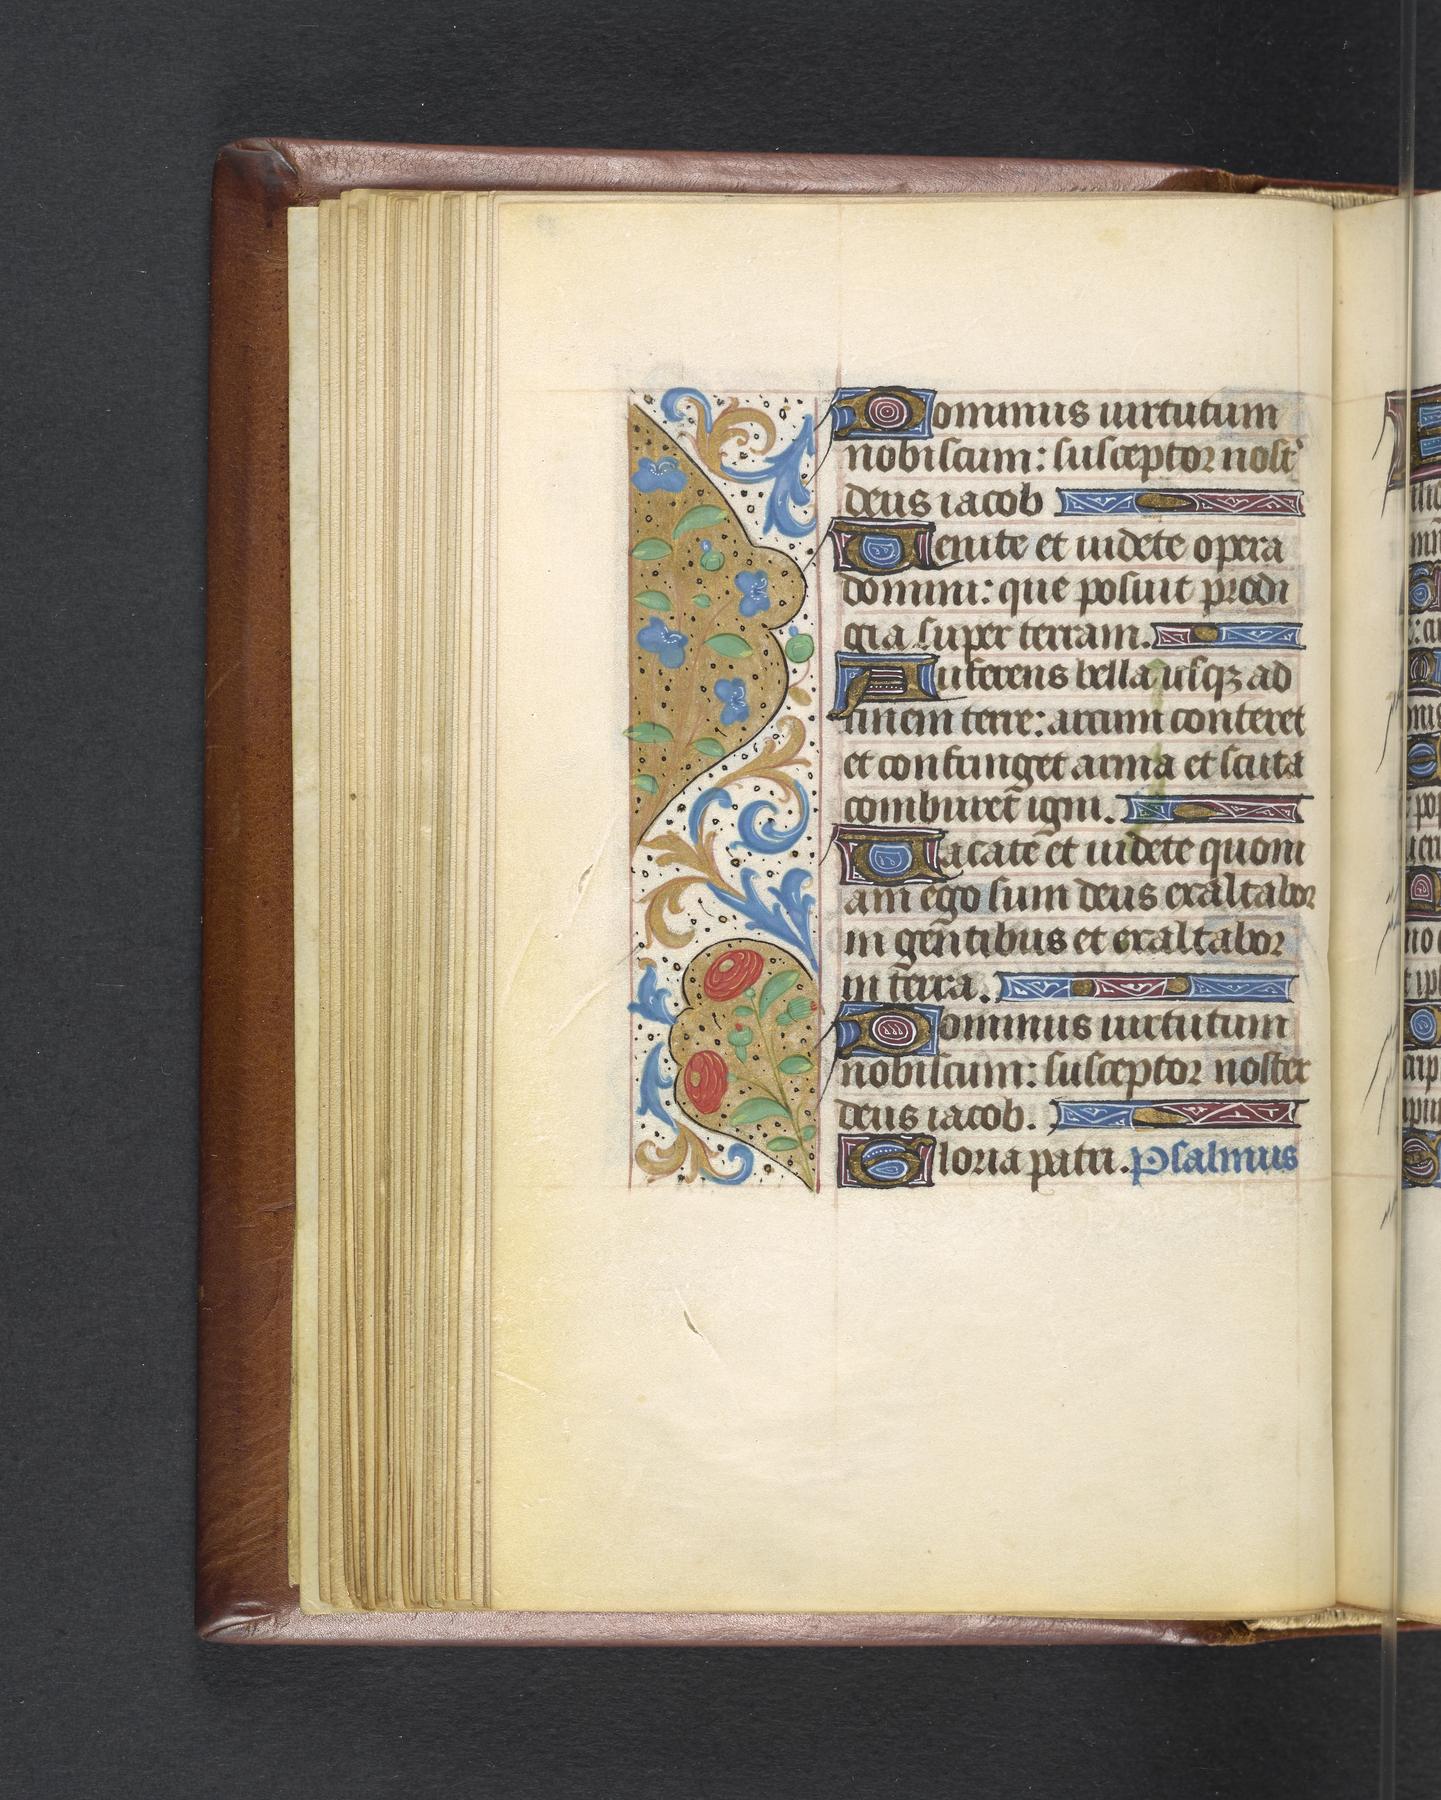 Dominus uirtutum
nobiscum: susceptor nost̾
deus iacob
Uenite et uidete opera
domini: que posuit prodi
gia super terram.
Auferens bella usqꝫ ad
finem terre: arcum conteret
et confringet arma et scuta
comburet igni.
Uacate et uidete quoni
am ego sum deus exaltabor
in gentibus et exaltabor
in terra.
Dominus uirtutum
nobiscum: susceptor noster
deus iacob.
Gloria patri. Psalmus